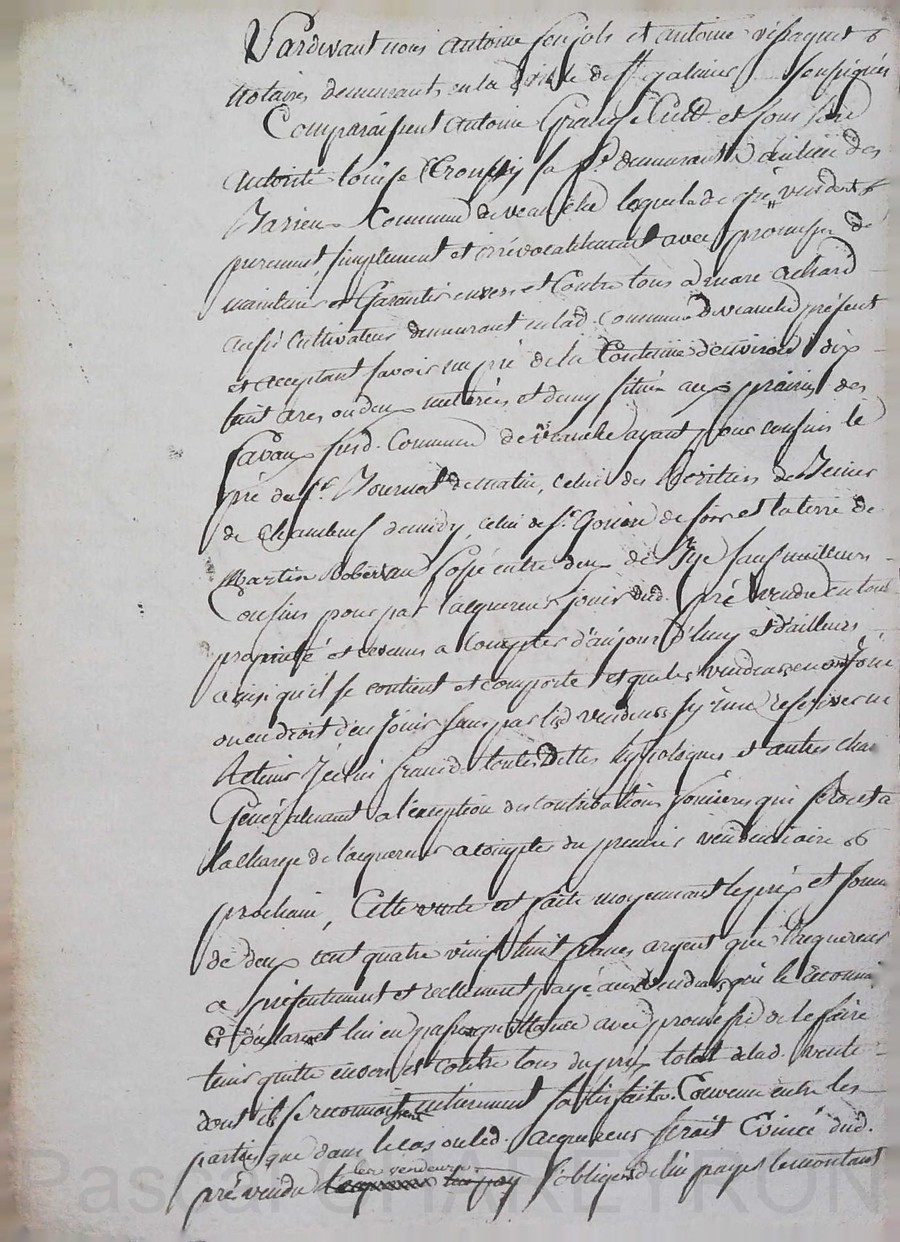 Pardevant nous antoine et antoine
Notaires demeurants en la ville de St galmier soussignés
Comparaissent antoine Grand et sous son
autorité louise sa fe. demeurants au lieu des
Barieu Commune de veauche lesquels de gré vendent
purement, simplement et irrévocablement avec promesse de
maintenir et Garantir envers et Contre tous a achard
aussi cultivateur demeurant en lad. Commune de veauche présent
et acceptant savoir un pré de la Contenue d'environ dix
huit ares ou deux metérées et demy situé aux prairies des
favaux susd. Commune de veauche ayant pour confins le
pré du Sr. de matin, celui des héritiers de
de Chambeuf de midy, celui de Sr. de soir et la terre de
Martin fossé entre deux de bize sauf meilleurs
Confins pour par l'acquereur jouir dud. pré vendu en toute
propriété et revenus a Compter d'aujourd'huy et d'ailleurs
ainsi qu'il se contient et comporte et que les vendeurs en ont joui
ou eu droit d'en jouir sans par lesd vendeurs s'y rien reserver ne
retenir franc de toutes Dettes hypoteques et autres
Généralement a l'exception des contributions foncieres qui seront a
la charge de l'acquereur a compter du premier vendemiaire
prochain, Cette vente est faite moyennant le prix et somme
de deux cent quatre vingt huit francs argent que l'acquereur
a présentement et reellement payé aux vendeurs qui le
Et déclarent lui en passer quittance avec promesse de le faire
tenir quitte envers et Contre tous du prix total de lad. vente
dont ils se reconnoissent entierement satisfaits. Convenu entre les
parties que dans le cas ou led. acquereur serait Evincé dud.
pré vendu les vendeurs s'obligent de lui payer le montant
Pascal CHAREYRON